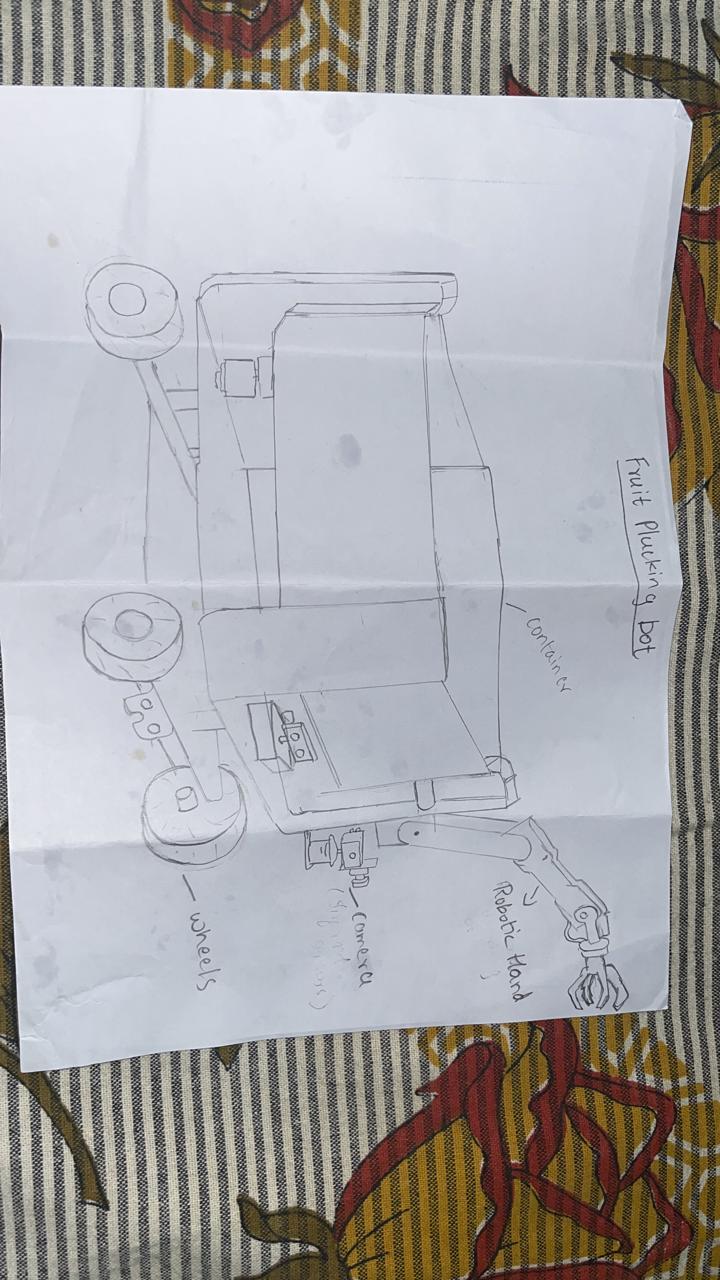 Fruit Plucking bot
container
Robotic Hand
camera
wheels